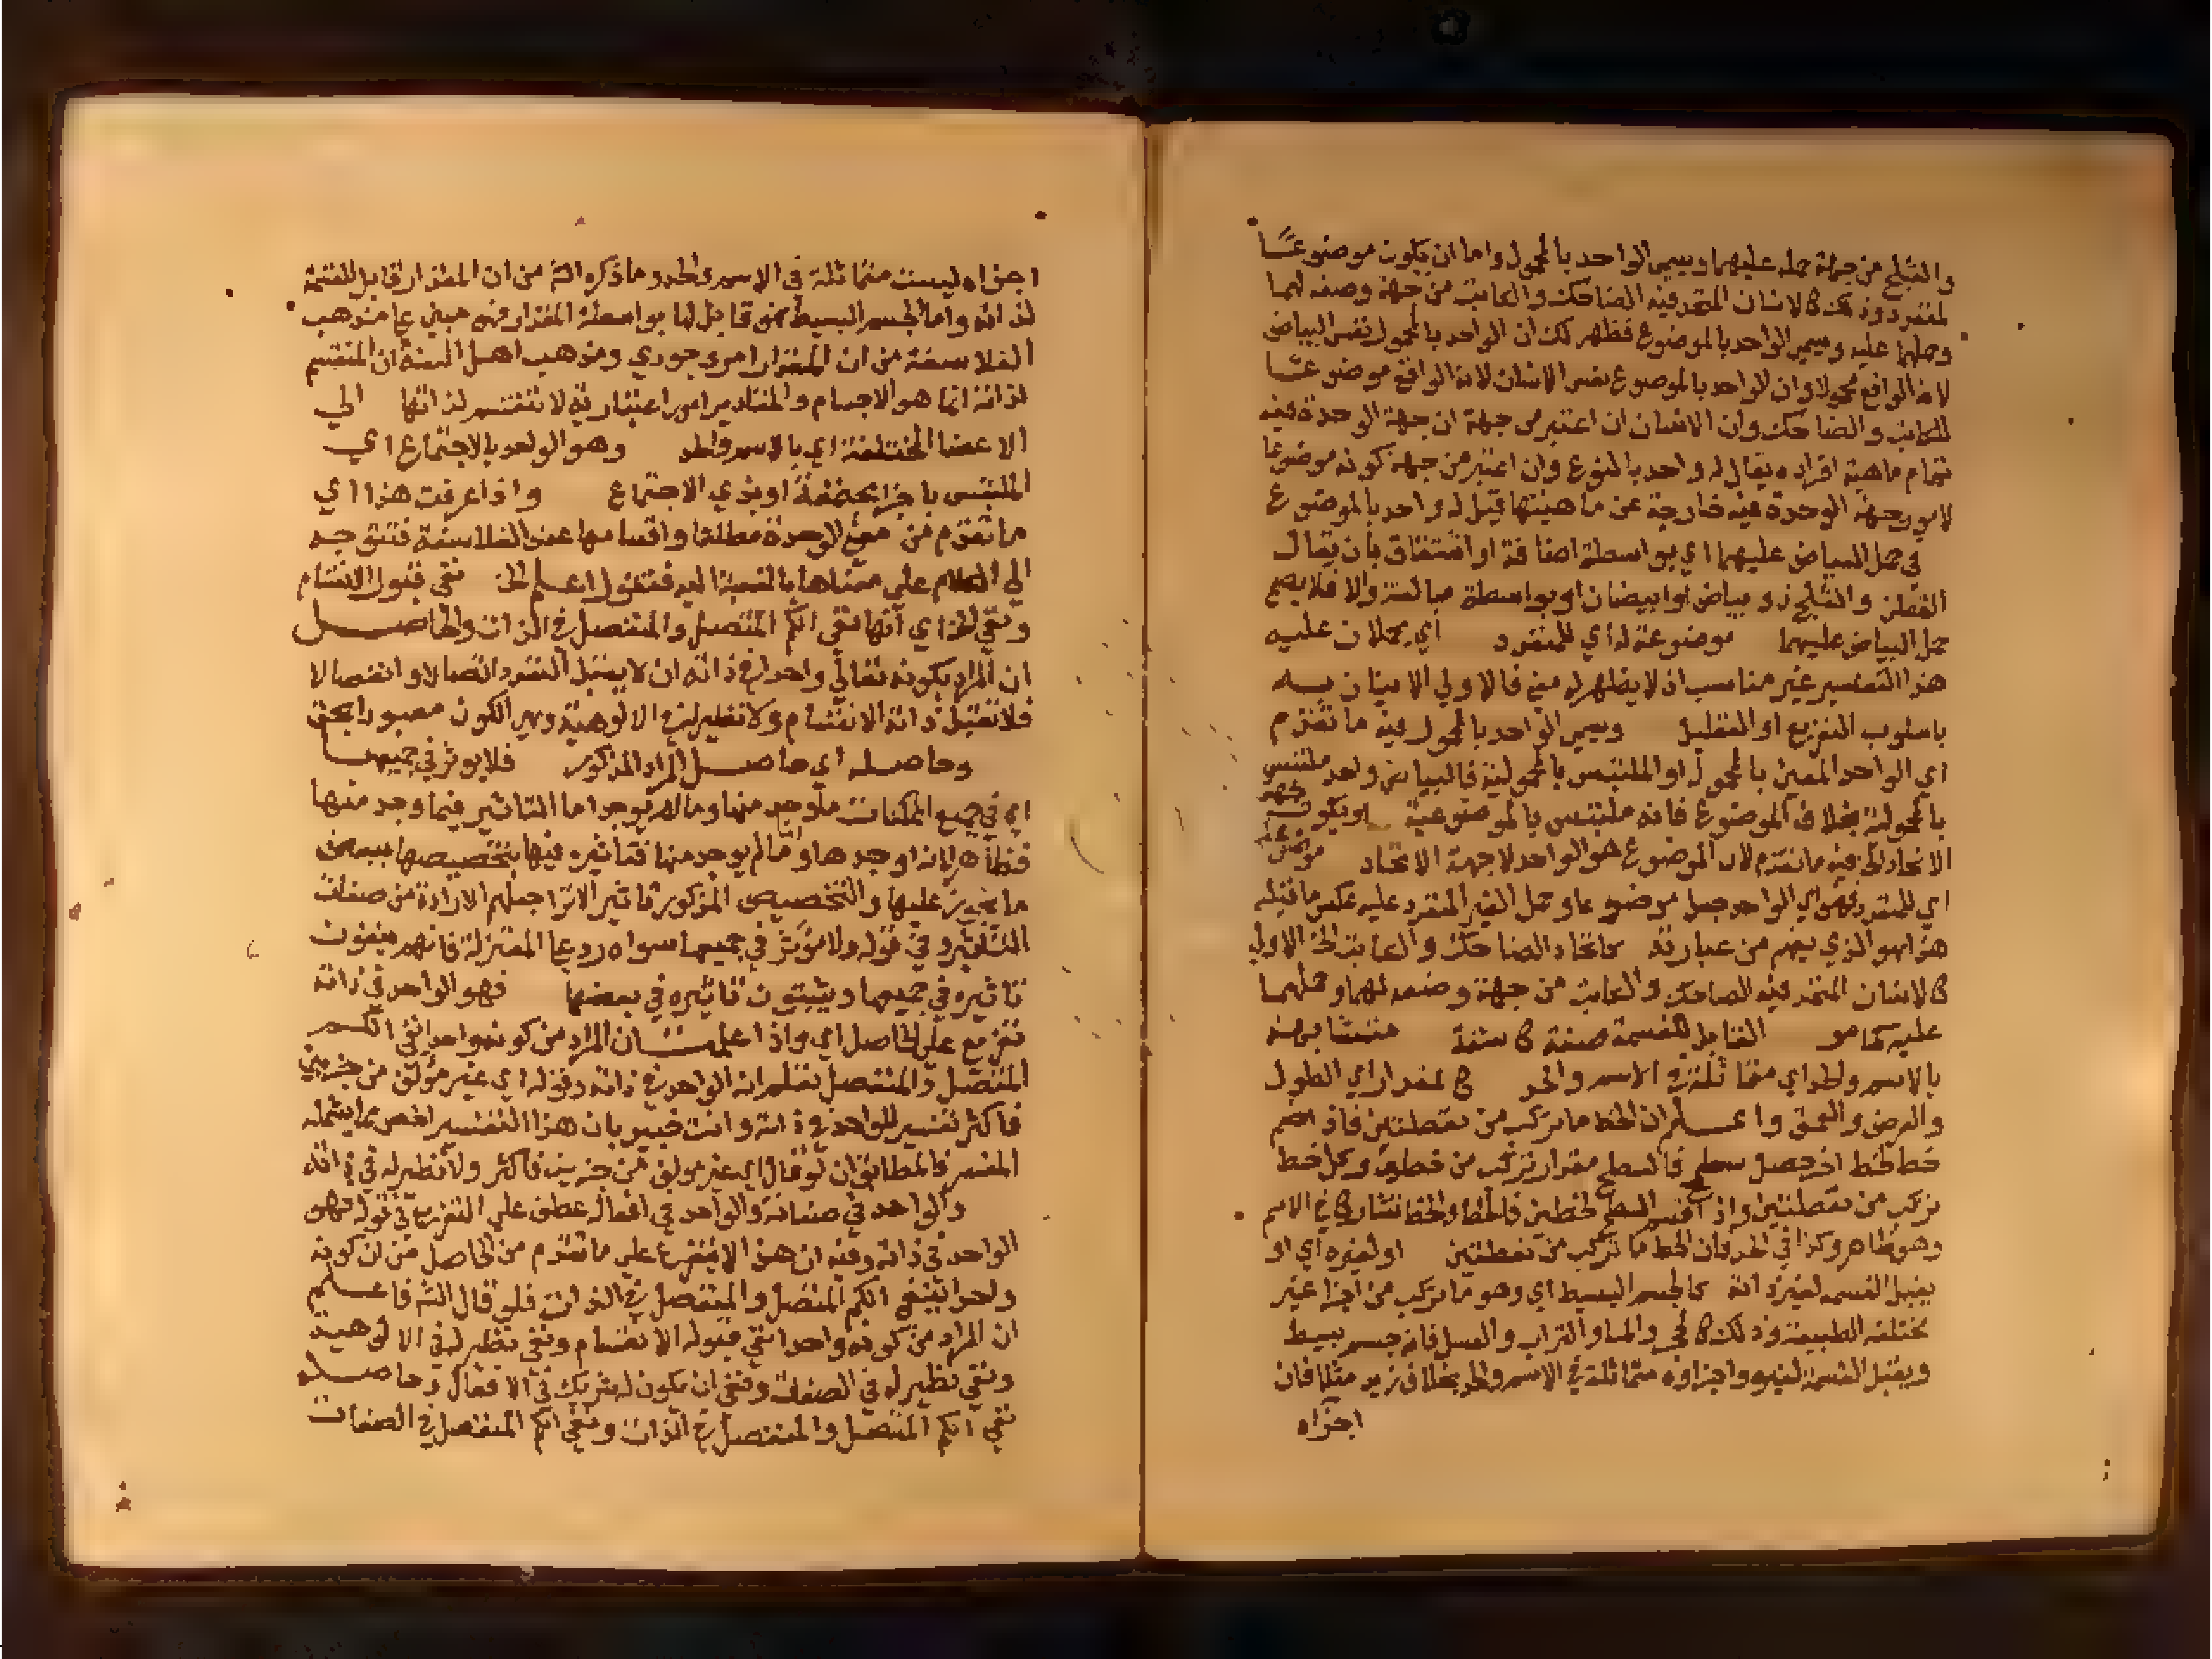 والثلج من جهة حمله عليهما ويسمى الواحد بالمحمول واما ان يكون موضوعًا
لمتعدد وذلك كالانسان المتحد فيه الضاحك والكاتب من جهة وصفه لهما
وحملهما عليه ويسمى الواحد بالموضوع فظهر لك ان الواحد بالمحمول نفس البياض
لانه الواقع محمولا وان الواحد بالموضوع نفس الانسان لانه الواقع موضوعًا
للكاتب والضاحك وان الانسان ان اعتبر من جهة ان جهة الوحدة فيه
تمام ماهية افراده يقال له واحد بالنوع وان اعتبر من جهة كونه موضوعا
لامور جهة الوحدة فيه خارجة عن ماهيتها قيل له واحد بالموضوع
في حمل البياض عليهما اي بواسطة اضافة او اشتقاق بان يقال
القطن والثلج ذو بياض او ابيضان او بواسطة مبالغة والا فلا يصح
حمل البياض عليهما موضوعة له اي للمتعدد اي يحملان عليه
هذا التفسير غير مناسب اذ لا يظهر له معنى فالاولى الاتيان به
باسلوب التفريع او التعليل ويسمى الواحد بالمحمول فيه ما تقدم
اي الواحد المعين بالمحمول او الملتبس بالمحمولية فالبياض واحد ملتبس
بالمحمولية بخلاف الموضوع فانه ملتبس بالموضوعية او يكون جهة
الاتحاد الخ فيه ما تقدم لان الموضوع هو الواحد لا جهة الاتحاد موضوعا
اي للمتعدد فهو اي الواحد جعل موضوعا وحمل الغير المتعدد عليه عكس ما قبله
هذا هو الذي يفهم من عبارته كاتحاد الضاحك والكاتب الخ الاولى
كالانسان المتحد فيه الضاحك والكاتب من جهة وضعه لهما وحملهما
عليه كما مر القابل للقسمة صفة كاشفة متشابهة
بالاسم والحد اي متماثلة في الاسم والحد كالمقدار اي الطول
والعرض والعمق واعلم ان الخط ما تركب من نقطتين فاذا ضم
خط لخط اخر حصل سطح فالسطح مقدار تركب من خطين وكل خط
تركب من نقطتين واذا قسم السطح لخطين فالخط والخط تشاركا في الاسم
وهو ظاهر وكذا في الحد فان الخط ما تركب من نقطتين او لغيره اي او
يقبل القسمة لغير ذاته كالجسم البسيط اي وهو ما تركب من اجزا غير
مختلفة الطبيعة وذلك كالحجر والماء والتراب والعسل فانه جسم بسيط
ويقبل القسمة لغيره واجزاؤه متماثلة في الاسم والحد بخلاف زيد مثلا فان
اجزاه
اجزاه ليست متماثلة في الاسم والحد وما ذكره الش من ان المقدار قابل للقسمة
لذاته واما الجسم البسيط فهو قابل لها بواسطة المقدار فهو مبني على مذهب
الفلاسفة من ان المقدار امر وجودي ومذهب اهل السنة ان المنقسم
لذاته انما هو الاجسام والمقادير امور اعتبارية لا تنقسم لذاتها الى
الاعضا المختلفة اي بالاسم والحد وهو الواحد بالاجتماع اي
الملتبس باجزا مجتمعة او بذي الاجتماع واذا عرفت هذا اي
ما تقدم من معنى الوحدة مطلقا واقسامها عند الفلاسفة فنتوجه
الى الكلام على معناها بالنسبة اليه فنقول اعلم الخ نفى قبول الانقسام
ونفي الخ اي انها نفي الكم المتصل والمنفصل في الذات والحاصل
ان المراد بكونه تعالى واحدا في ذاته ان لا يقبل التعدد اتصالا وانفصالا
فلا تقبل ذاته الانقسام ولا نظير له في الالوهية وهي الكون معبودا بحق
وحاصله اي حاصل المراد المذكور فلا يوثر في جميعها
اي في جميع الممكنات ما وجد منها وما لم يوجد اما التاثير فيما وجد منها
فظاهر لانه اوجدها واما لم يوجد منها فتاثيره فيها بتخصيصها ببعض
ما يجوز عليها والتخصيص المذكور تاثير الاترا جعلهم الارادة من صفات
التاثير وفي قوله ولا مؤثر في جميعها سواه رد على المعتزلة فانهم ينفون
تاثيره في جميعها ويثبتون تاثيره في بعضها فهو الواحد في ذاته
تفريع على الحاصل اي واذا علمت ان المراد من كونه واحدا نفي الكم
المتصل والمنفصل تعلم انه الواحد في ذاته وقوله اي غير مؤلف من جزءين
فاكثر تفسير للواحد في ذاته وانت خبير بان هذا التفسير اخص مما يشمله
المفسر فالمطابق ان لو قال اي غير مولف من جزءين فاكثر ولا نظير له في ذاته
والواحد في صفاته والواحد في افعاله عطف على التفريع في قوله فهو
الواحد في ذاته وفيه ان هذا لا يتفرع على ما تقدم من الحاصل من ان كونه
واحدا ينفي الكم المتصل والمنفصل في الذات فلو قال الش فاعلم
ان المراد من كونه واحدا نفي قبوله الانقسام ونفي نظير له في الالوهية
ونفي نظير له في الصفات ونفي ان يكون له شريك في الافعال وحاصله
نفي الكم المتصل والمنفصل في الذات ونفي الكم المنفصل في الصفات